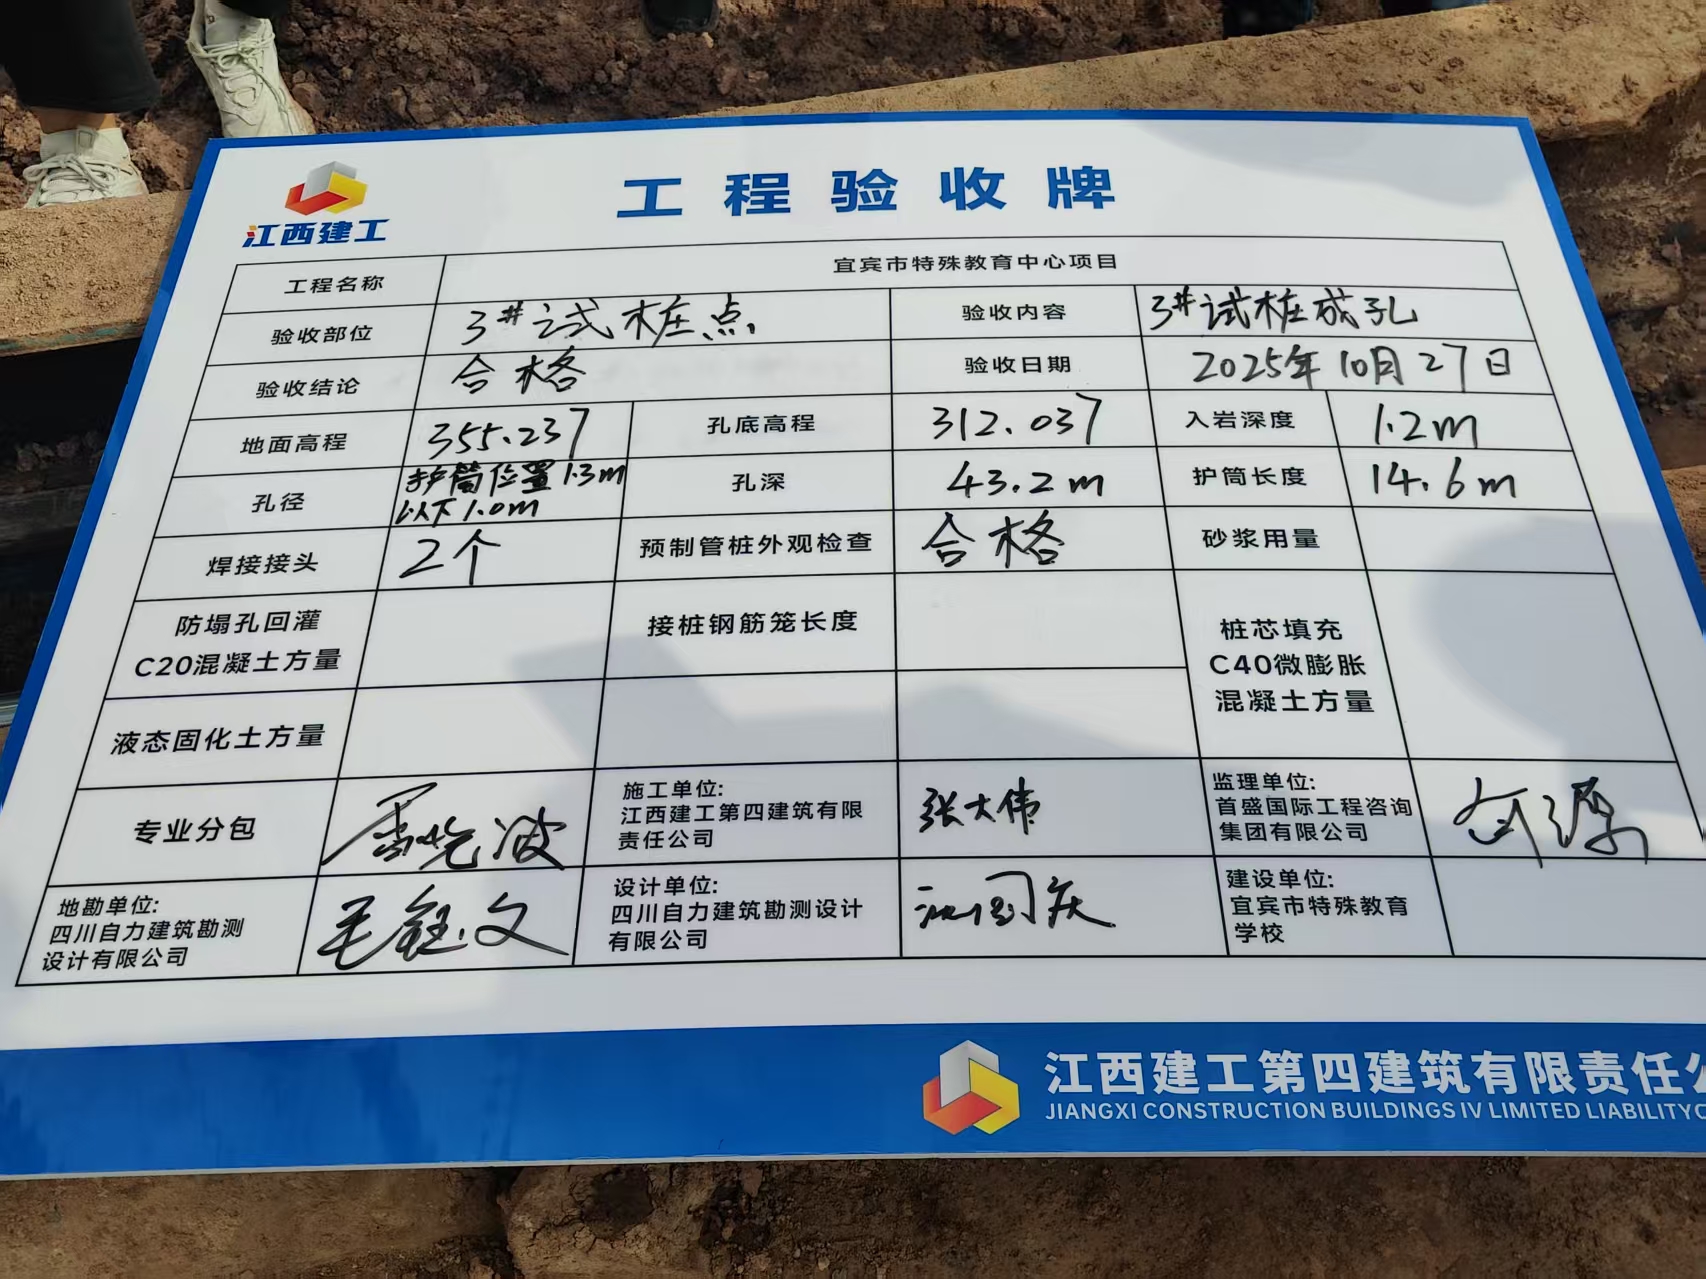 江西建工
工程验收牌
工程名称 宜宾市特殊教育中心项目
验收部位 3#试桩点 验收内容 3#试桩成孔
验收结论 合格 验收日期 2025年10月27日
地面高程 355.237 孔底高程 312.037 入岩深度 1.2m
孔径 护筒位置1.3m
以下1.0m
孔深 43.2m 护筒长度 14.6m
焊接接头 2个 预制管桩外观检查 合格 砂浆用量
防塌孔回灌
C20混凝土方量
接桩钢筋笼长度
桩芯填充
C40微膨胀
混凝土方量
液态固化土方量
专业分包
施工单位:
江西建工第四建筑有限
责任公司
张大伟
监理单位:
首盛国际工程咨询
集团有限公司
地勘单位:
四川自力建筑勘测
设计有限公司
毛钰文
设计单位:
四川自力建筑勘测设计
有限公司
建设单位:
宜宾市特殊教育
学校
江西建工第四建筑有限责任公
JIANGXI CONSTRUCTION BUILDINGS IV LIMITED LIABILITY